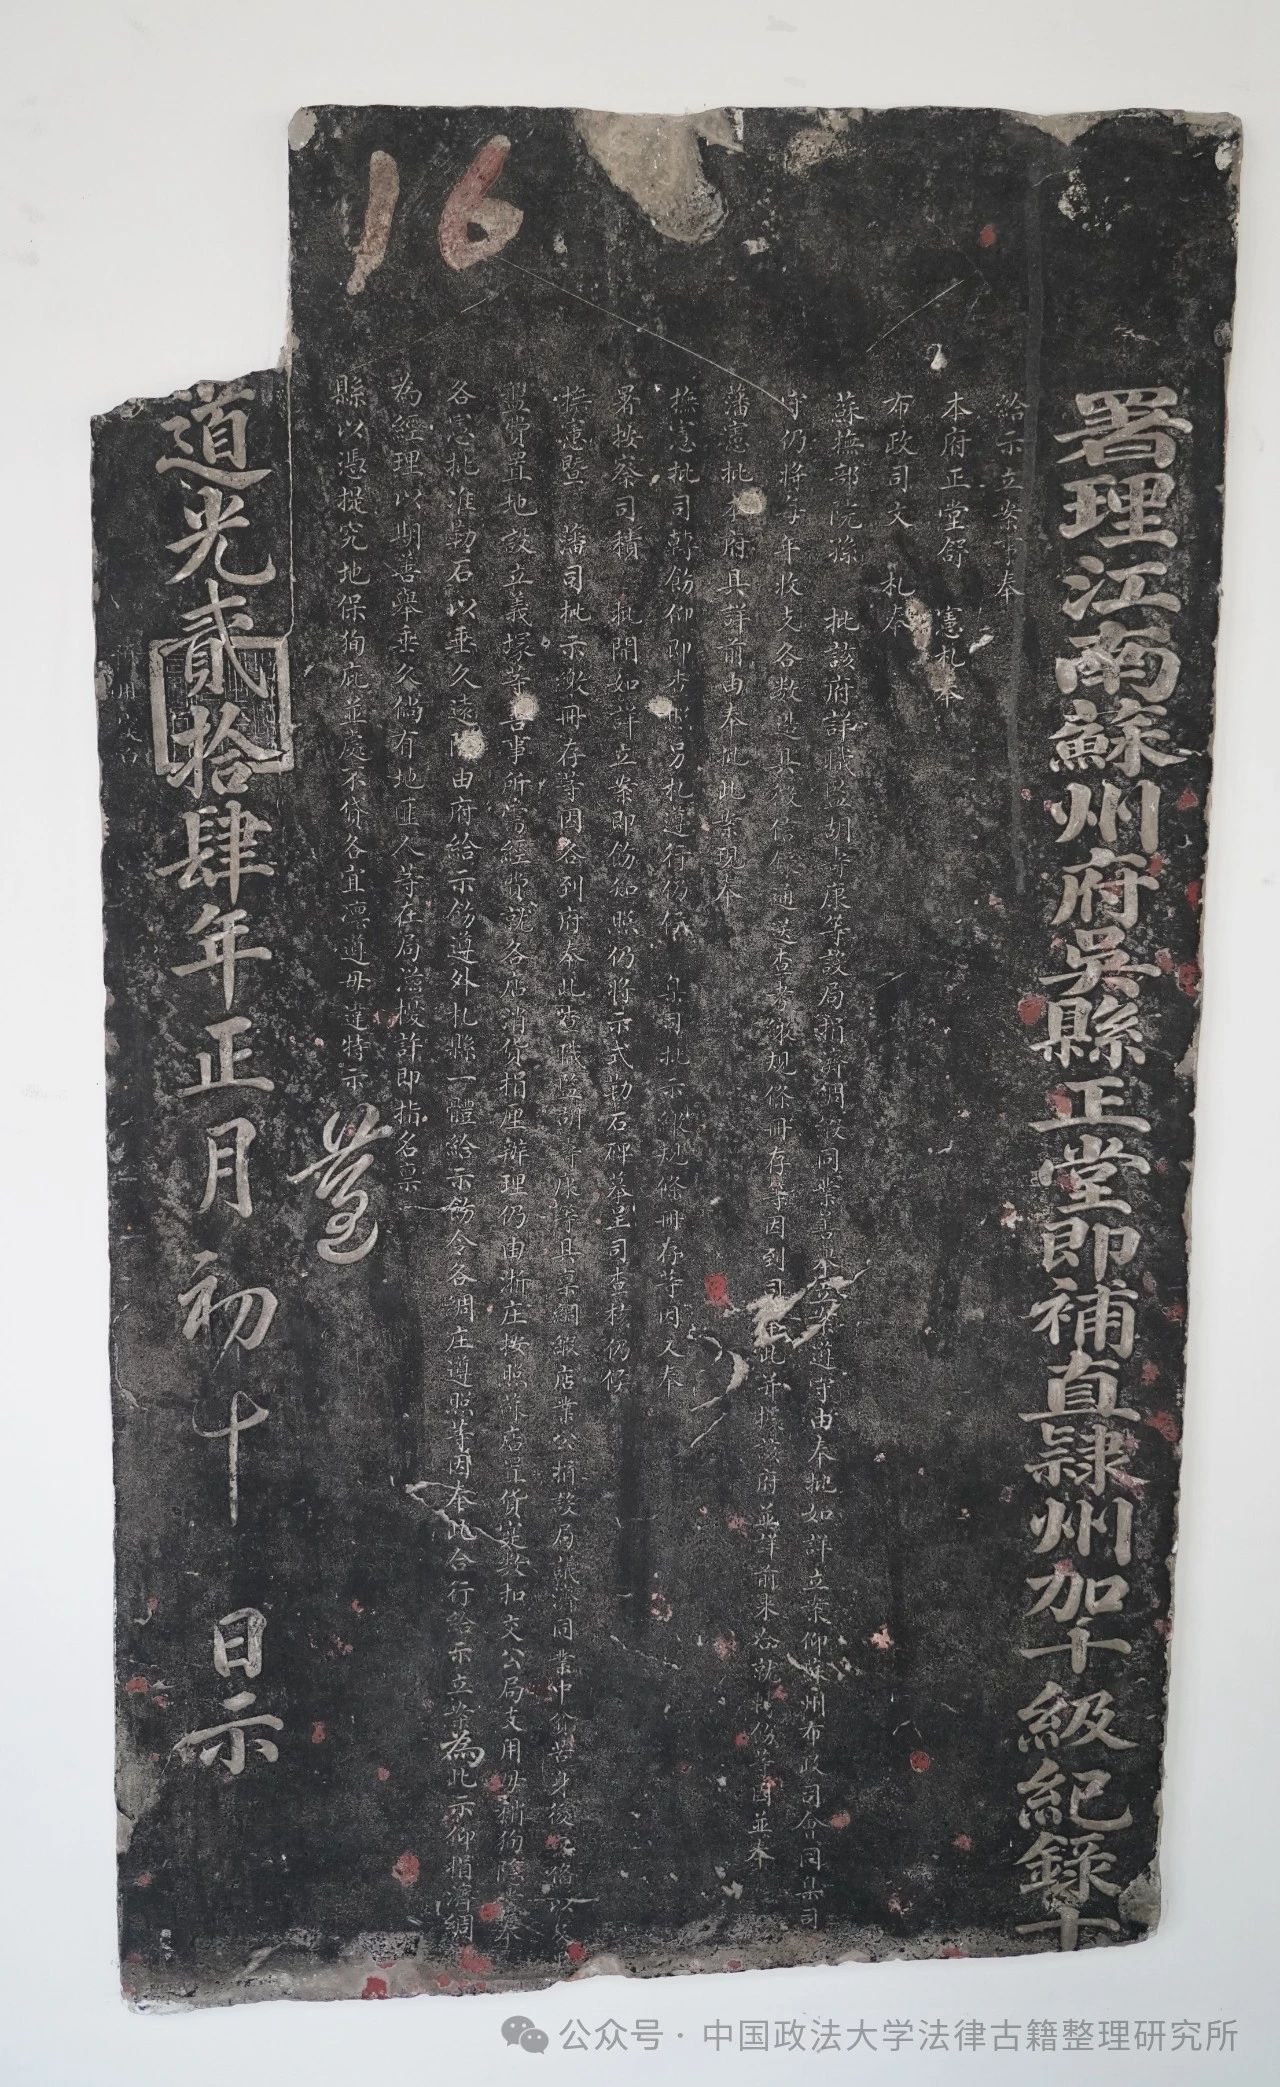 16
署理江南蘇州府吳縣正堂即補直隸州加十級紀錄十
給示立案事奉
本府正堂舒 憲札奉
布政司文 札奉
蘇撫部院孫 批該府詳職監胡壽康等設局捐濟綢緞同業善舉立案遵守由奉批如詳立案仰蘇州布政司會同臬司
守仍將每年收支各數造具 通送查考繳規條冊存等因到司奉此并據該府並詳前來合就轉飭等因並奉
藩憲批本府具詳前由奉批此案現奉
撫憲批司轉飭仰即查照另札遵行仍候 臬司批示繳規條冊存等因又奉
署按察司積 批開如詳立案即飭知照仍將示式勒石碑摹呈司查核仍候
撫憲暨 藩司批示繳冊存等因各到府奉此查職監胡壽康等具稟綢緞店業公捐設局賑濟同業中貧苦身後無
置地設立義塚等善事所需經費就各店消貨捐厘辦理仍由浙庄按照蘇店置貨定數扣交公局支用毋稍徇隱
各憲批准勒石以垂久遠除由府給示飭遵外札縣一體給示飭令各綢庄遵照等因奉此合行給示立案為此示仰捐濟綢
為經理以期善舉垂久倘有地匪人等在局滋擾許即指名稟
縣以憑提究地保徇庇並處不貸各宜凜遵毋違特示
遵
道光貳拾肆年正月初十日示
公众号·中国政法大学法律古籍整理研究所